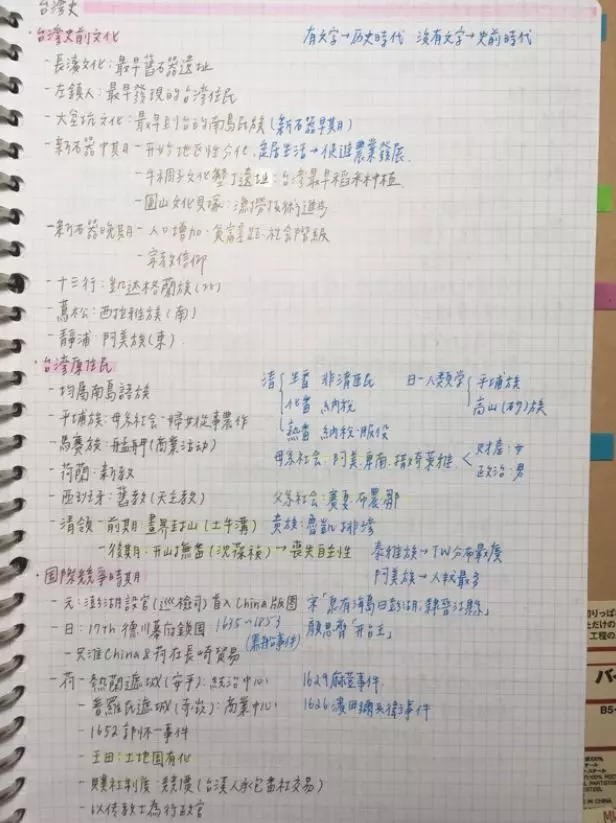 台灣史
・台灣史前文化 有文字→历史時代 沒有文字→史前時代
-長濱文化:最早舊石器遺址
-左鎮人:最早發現的台灣住民
-大坌坑文化:最早到台的南島民族(新石器早期)
-新石器中期-開始地區性分化,定居生活→促進農業發展
-牛稠子文化墾丁遺址:台灣最早稻米种植
-圓山文化貝塚:漁撈技術進步
-新石器晚期-人口增加.貧富差距.社會階級
-宗教信仰
-十三行:凱达格蘭族(北)
-蔦松:西拉雅族(南)
-靜浦:阿美族(東)
・台灣原住民
-均屬南島語族 清 生番 非清住民 日-人類学 平埔族
化番 納稅 高山(砂)族
-平埔族:母系社会-婦女從事農作 熟番 納稅.服役
-馬賽族-艋舺(商業活动) 母系社會:阿美.卑南. 財產:女
政治:男
-荷蘭:新教
-西班牙:舊教(天主教) 父系社會:賽夏.布農.鄒
-清領-前期:畫界封山(土牛溝) 貴族:魯凱.排灣
-後期:開山撫番(沈葆禎)→喪失自主性 泰雅族→TW分布最廣
阿美族→人数最多
・国際競爭時期
-元:澎湖設官(巡檢司)首入China版圖 宋「
-日:17th 德川幕府鎖国 1635~1853 顏思齊「開台王」
(黑船事件)
-只准China&荷在長崎貿易
-荷-熱蘭遮城(安平):統治中心 1629麻荳事件
-普羅民遮城(赤崁):商業中心 1626濱田彌兵衛事件
-1652郭怀一事件
-王田:土地国有化
-贌社制度:競價(台漢人承包番社交易)
-以傳教士為行政官